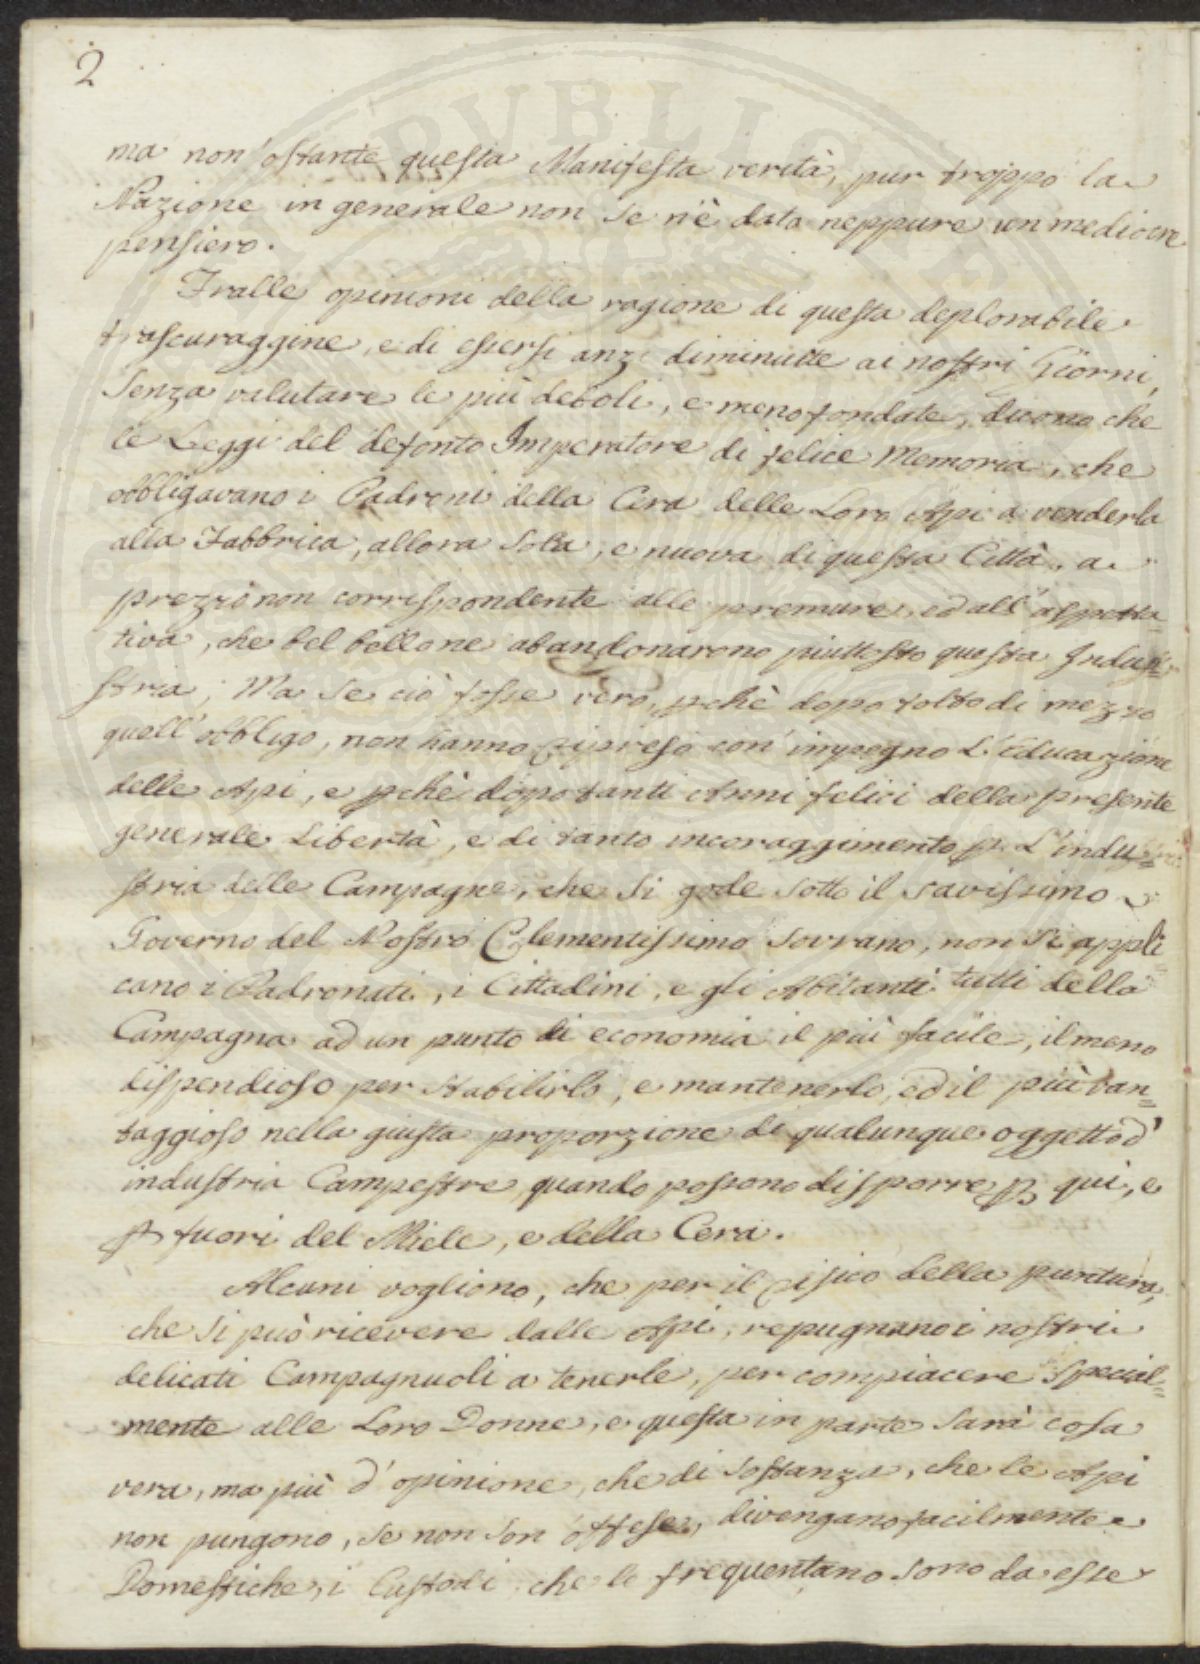 2
ma non'ostante questa Manifesta verità, pur troppo la
Nazione in generale non se n'è data neppure un mediocre
pensiero.
Fralle opinioni della ragione di questa deplorabile
trascuraggine, e di essersi anzi diminuite ai nostri Giorni,
senza valutare le più deboli, e meno fondate, dicono che
le Leggi del defonto Imperatore di felice Memoria, che
obbligavano i Padroni della Cera delle Loro Api a venderla
alla Fabbrica, allora sola, e nuova di questa Città, a
prezzo non corrispondente alle premure, ed all'aspetta=
tiva, che bel bello ne abandonarono piuttosto questa Indu=
stria; Ma se ciò fosse vero, pchè dopo tolto di mezzo
quell'obbligo, non hanno ripreso con' impegno L'Educazione
delle Api, e pchè dopo tanti Anni felici della presente
generale Libertà, e di tanto incoraggimento p. L'indu=
stria delle Campagne, che si gode sotto il savissimo
Governo del Nostro Clementissimo Sovrano, non si appli=
cano i Padronati, i Cittadini, e gli Abitanti tutti della
Campagna ad un punto di economia il più facile, il meno
dispendioso per stabilirlo, e mantenerlo, ed il più van=
taggioso nella giusta proporzione di qualunque oggetto d'
industria Campestre, quando possono disporre p qui, e
p fuori del Miele, e della Cera.
Alcuni vogliono, che per il fisico della puntura,
che si può ricevere dalle Api, repugnano i nostri
delicati Campagnuoli a tenerle, per compiacere special=
mente alle Loro Donne, e questa in parte sarà cosa
vera, ma più d'opinione, che di sostanza, che le Api
non pungono, se non son' offese, divengano facilmente
Domestiche, i Custodi che le frequentano sono da esse